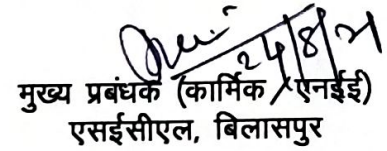 24/8/21
मुख्य प्रबंधक (कार्मिक / एनईई)
एसईसीएल, बिलासपुर